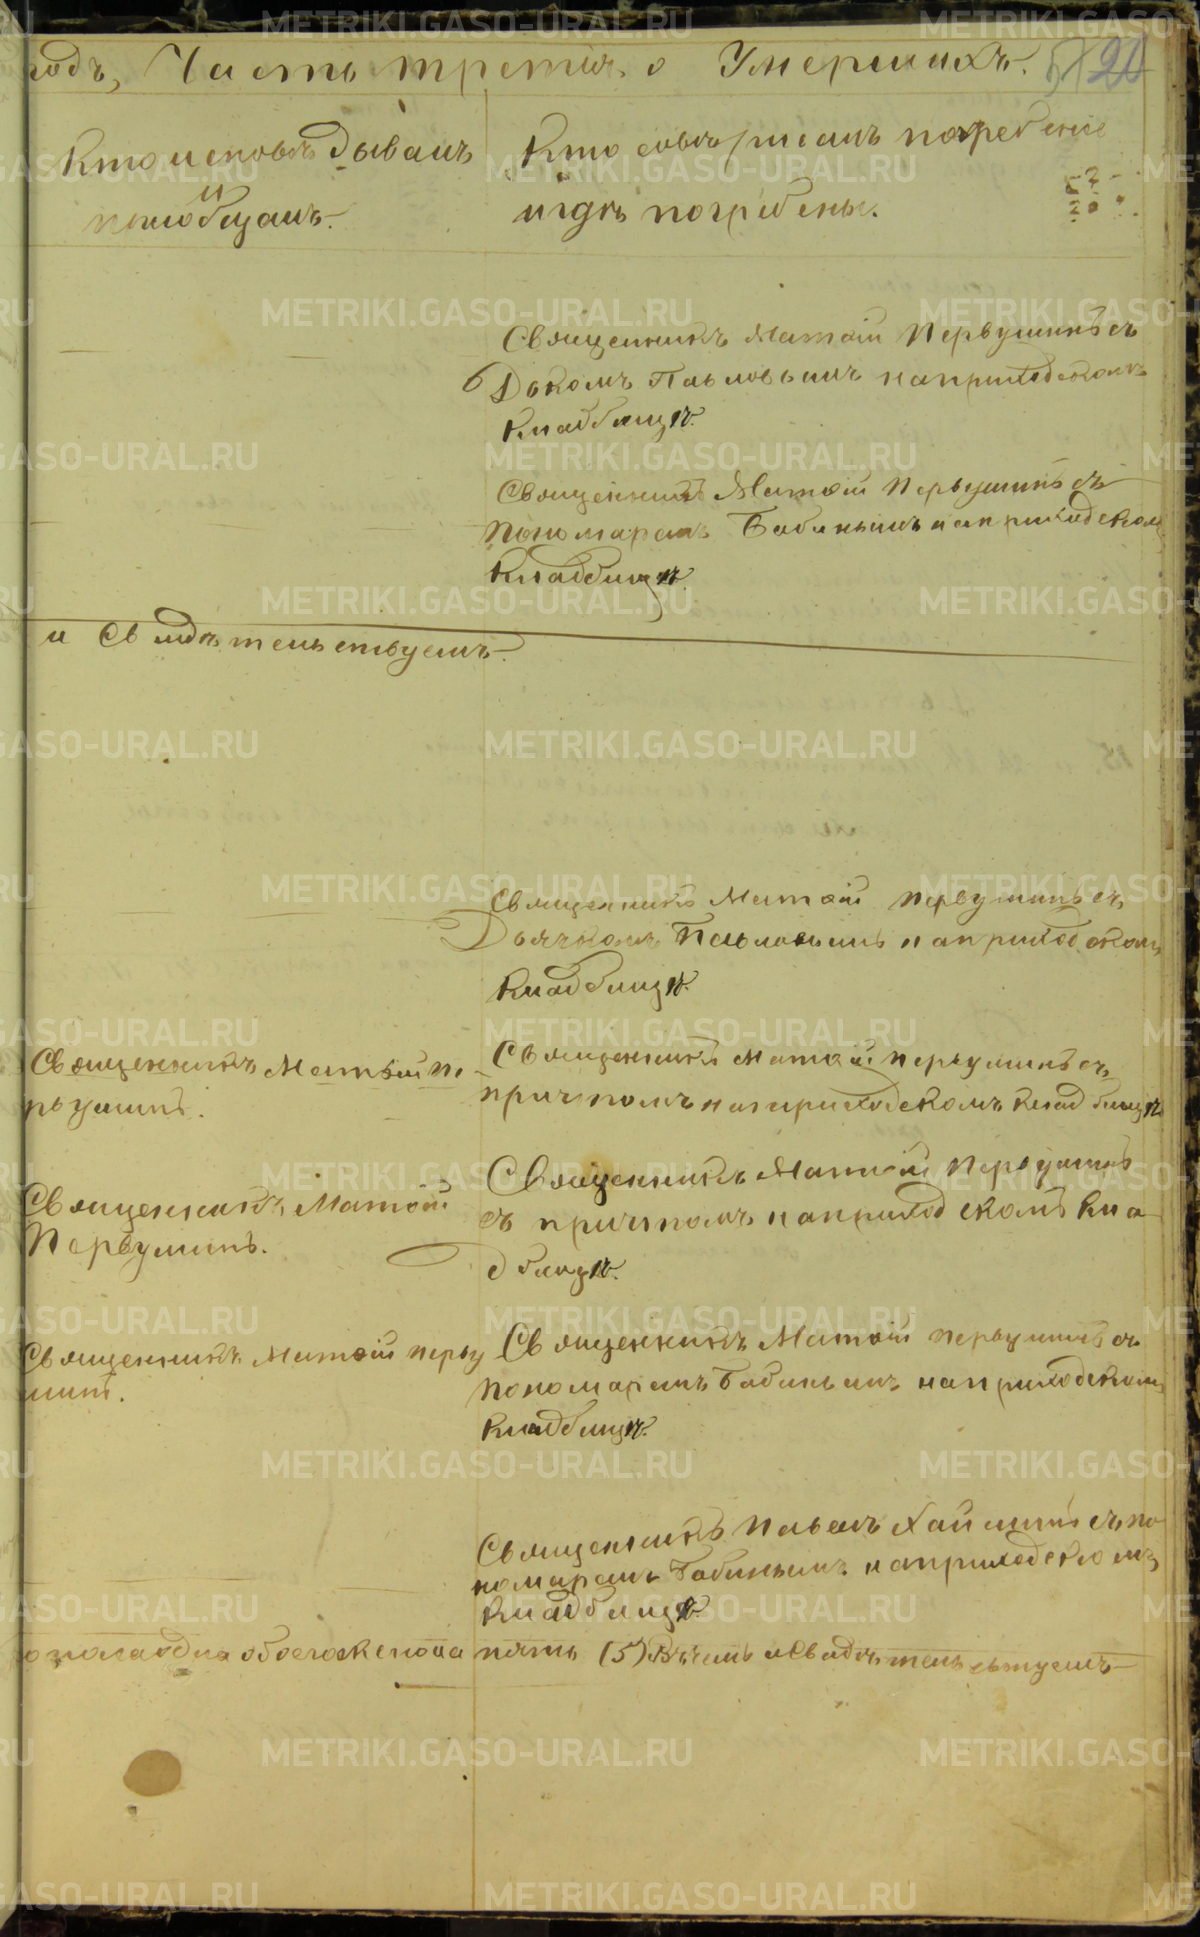 годъ, Часть третія, о Умершихъ. 20
Кто исповѣдывалъ
и
пріобщалъ.
Кто совершалъ погребеніе
и гдѣ погребены.
Священникъ Матѳій Первушинъ съ
Дьякомъ Павловымъ на приходскомъ
Кладбищѣ.
Священникъ Матѳій Первушинъ съ
Пономаремъ Бабинымъ на приходскомъ
Кладбищѣ
и Свидѣтельствуемъ.
Священникъ Матѳій Первушинъ съ
Дьячкомъ Павловымъ на приходскомъ
Кладбищѣ.
Священникъ Матѳій Пе
рвушинъ.
Священникъ Матѳій Первушинъ съ
причтомъ на приходскомъ Кладбищѣ
Священникъ Матѳій
Первушинъ.
Священникъ Матѳій Первушинъ
съ причтомъ на приходскомъ Кла
дбищѣ.
Священникъ Матѳій Перву
шинъ.
Священникъ Матѳій Первушинъ съ
пономаремъ Бабинымъ на приходскомъ
Кладбищѣ.
Священникъ Павелъ Хайминъ съ по
номаремъ Бабинымъ на приходскомъ
Кладбищѣ
о пола одна обоего женска пять (5) Въ чемъ и Свидѣтельствуемъ
METRIKI.GASO-URAL.RU